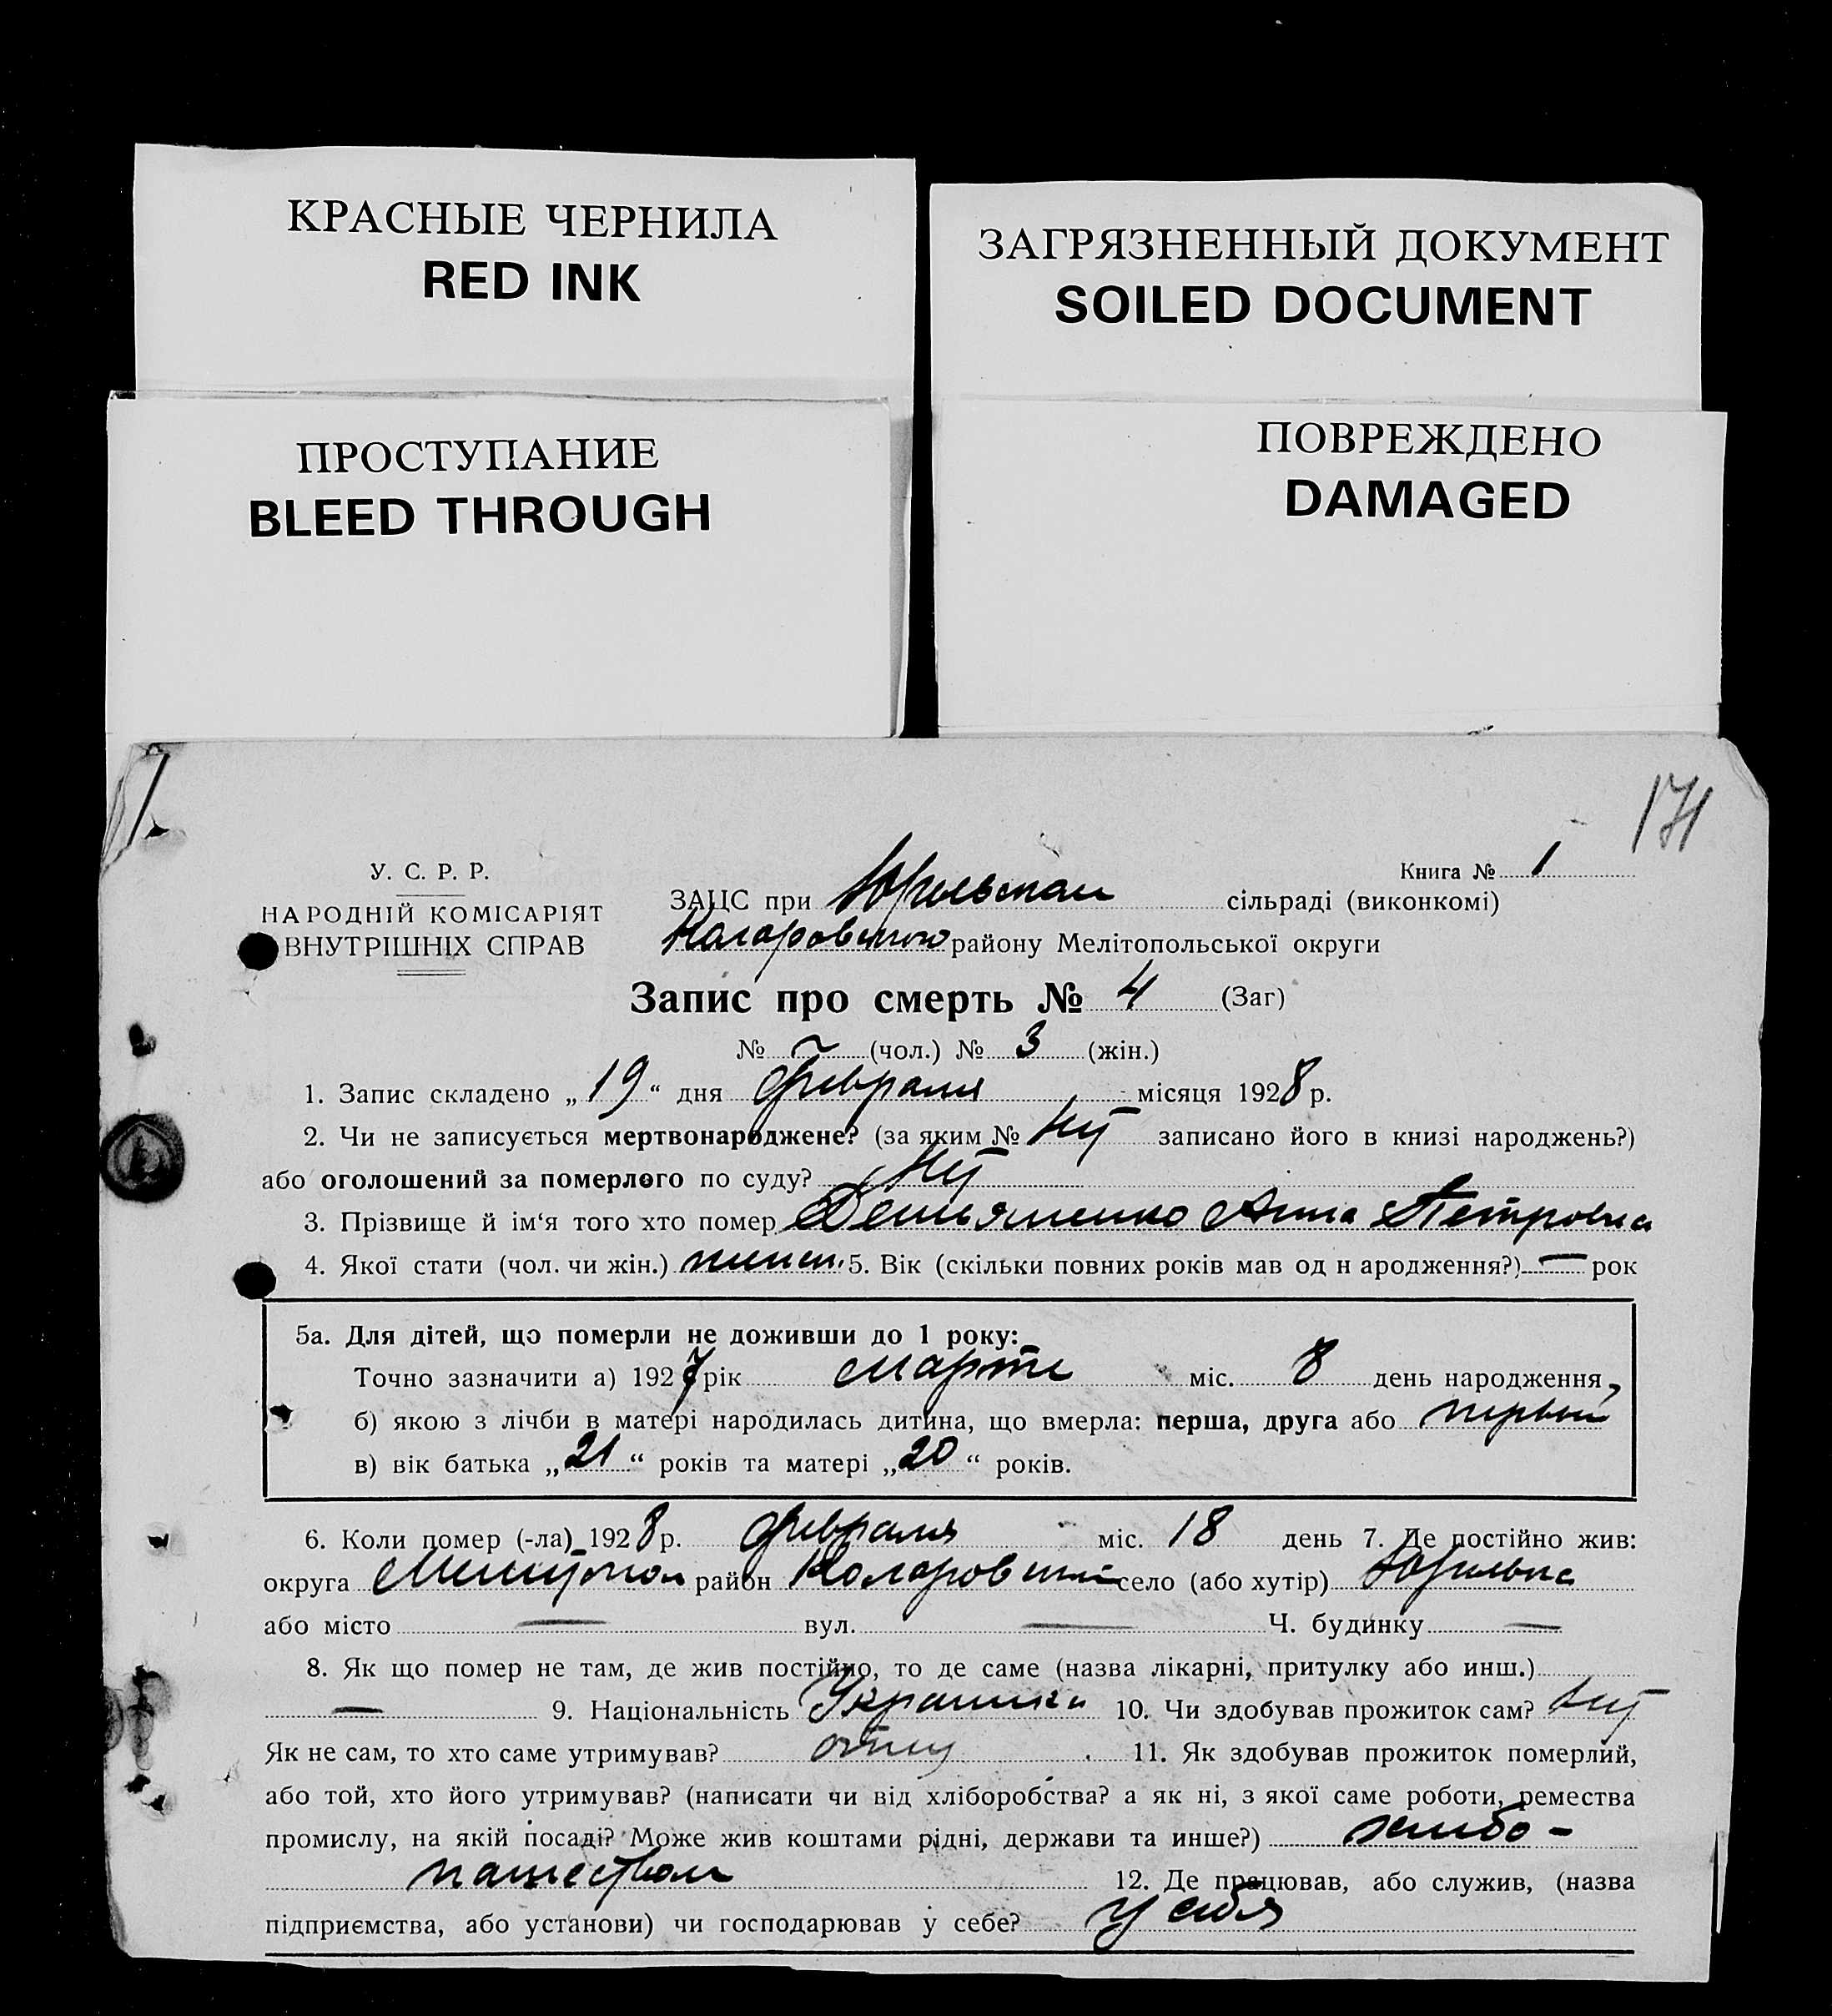 КРАСНЫЕ ЧЕРНИЛА
RED INK
ЗАГРЯЗНЕННЫЙ ДОКУМЕНТ
SOILED DOCUMENT
ПРОСТУПАНИЕ
BLEED THROUGH
ПОВРЕЖДЕНО
DAMAGED
171
У. С. Р. Р.
НАРОДНІЙ КОМІСАРІЯТ
ВНУТРІШНІХ СПРАВ
Книга № 1
ЗАЦС при сільраді (виконкомі)
району Мелітопольської округи
Запис про смерть № 4 (Заг)
№ (чол.) № 3 (жін.)
1. Запис складено „19“ дня февраля місяця 1928 р.
2. Чи не записується мертвонароджене? (за яким № нет записано його в книзі народжень?)
або оголошений за померлого по суду? нет
3. Прізвище й ім‘я того хто помер Демьяненко Анна Петровна
4. Якої стати (чол. чи жін.) 5. Вік (скільки повних років мав од н ародження?) — рок
5а. Для дітей, що померли не доживши до 1 року:
Точно зазначити а) 1927 рік марта міс. 8 день народження,
б) якою з лічби в матері народилась дитина, що вмерла: перша, друга або первый
в) вік батька „21“ років та матері „20“ років.
6. Коли помер (-ла) 1928 р. февраля міс. 18 день 7. Де постійно жив:
округа район село (або хутір)
або місто — вул. — Ч. будинку —
8. Як що помер не там, де жив постійно, то де саме (назва лікарні, притулку або инш.)
— 9. Національність Украинка 10. Чи здобував прожиток сам? нет
Як не сам, то хто саме утримував? отец 11. Як здобував прожиток померлий,
або той, хто його утримував? (написати чи від хліборобства? а як ні, з якої саме роботи, ремества
промислу, на якій посаді? Може жив коштами рідні, держави та инше?) хлебо-
пашеством 12. Де працював, або служив, (назва
підприємства, або установи) чи господарював у себе? у себя